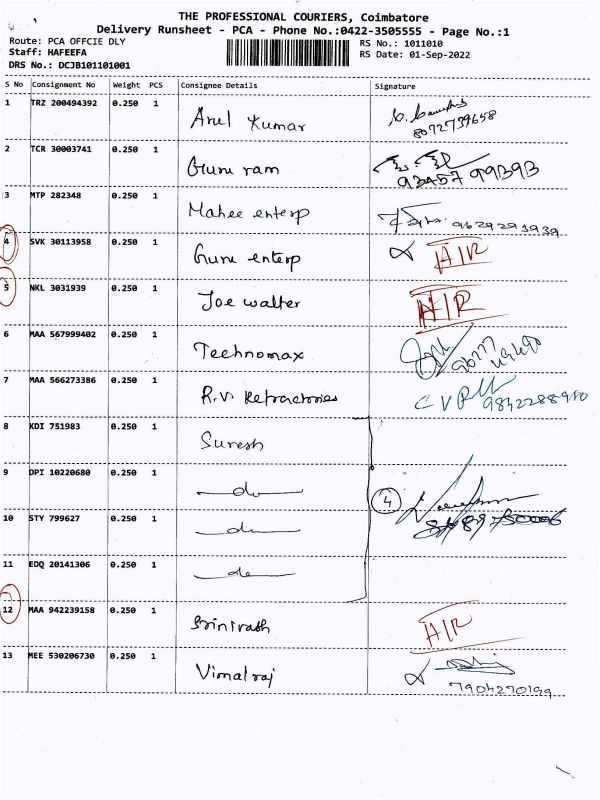 THE PROFESSIONAL COURIERS, Coimbatore
Delivery Runsheet - PCA - Phone No.:0422-3505555 - Page No.:1
Route: PCA OFFCIE DLY RS No.: 1011010
Staff: HAFEEFA RS Date: 01-Sep-2022
DRS No.: DCJB101101001
S No Consignment No Weight PCS Consignee Details Signature
1 TRZ 200494392 0.250 1 Arul Kumar
8072739658
2 TCR 30003741 0.250 1 Guru ram
93457 99393
3 MTP 282348 0.250 1 Mahee enterp 9629291939
4 SVK 30113958 0.250 1 Guru enterp A/R
5 NKL 3031939 0.250 1 Joe walter A/R
6 MAA 567999402 0.250 1 Technomax
7 MAA 566273386 0.250 1 R.V. Refractories C V R 9842288910
8 KDI 751983 0.250 1 Suresh
9 DPI 10220680 0.250 1 do 4
10 STY 799627 0.250 1 do
11 EDQ 20141306 0.250 1 do
12 MAA 942239158 0.250 1 Srinivash A/R
13 MEE 530206730 0.250 1 Vimal raj
7904270199